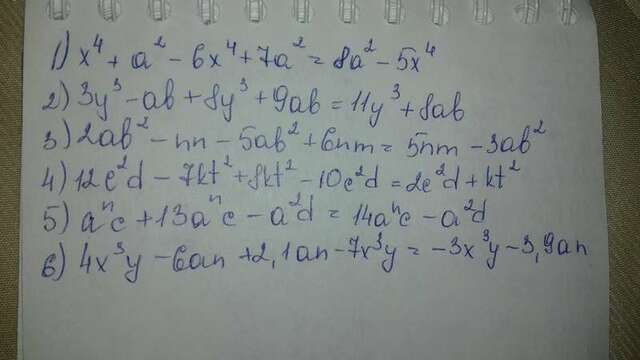 1) x⁴ + a² - 6x⁴ + 7a² = 8a² - 5x⁴
2) 3y³ - ab + 8y³ + 9ab = 11y³ + 8ab
3) 2ab² - nn - 5ab² + 6nm = 5nm - 3ab²
4) 12c²d - 7kt² + 8kt² - 10c²d = 2c²d + kt²
5) aⁿc + 13aⁿc - a²d = 14aⁿc - a²d
6) 4x³y - 6an + 2,1an - 7x³y = -3x³y - 3,9an